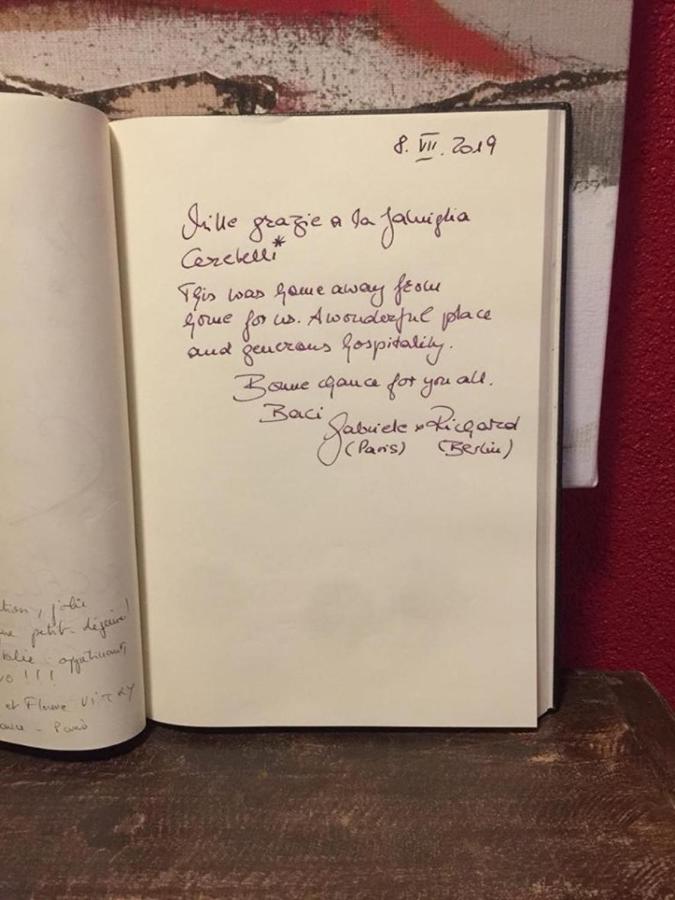 8. VII. 2019
Mille grazie a la famiglia
Cerebelli*
This was home away from
home for us. A wonderful place
and generous hospitality.
Bonne chance for you all.
Baci Gabriele + Richard
(Paris) (Berlin)
tion, jolie
petit-déjeuner!
!!!
et Florence VITRY
Paris